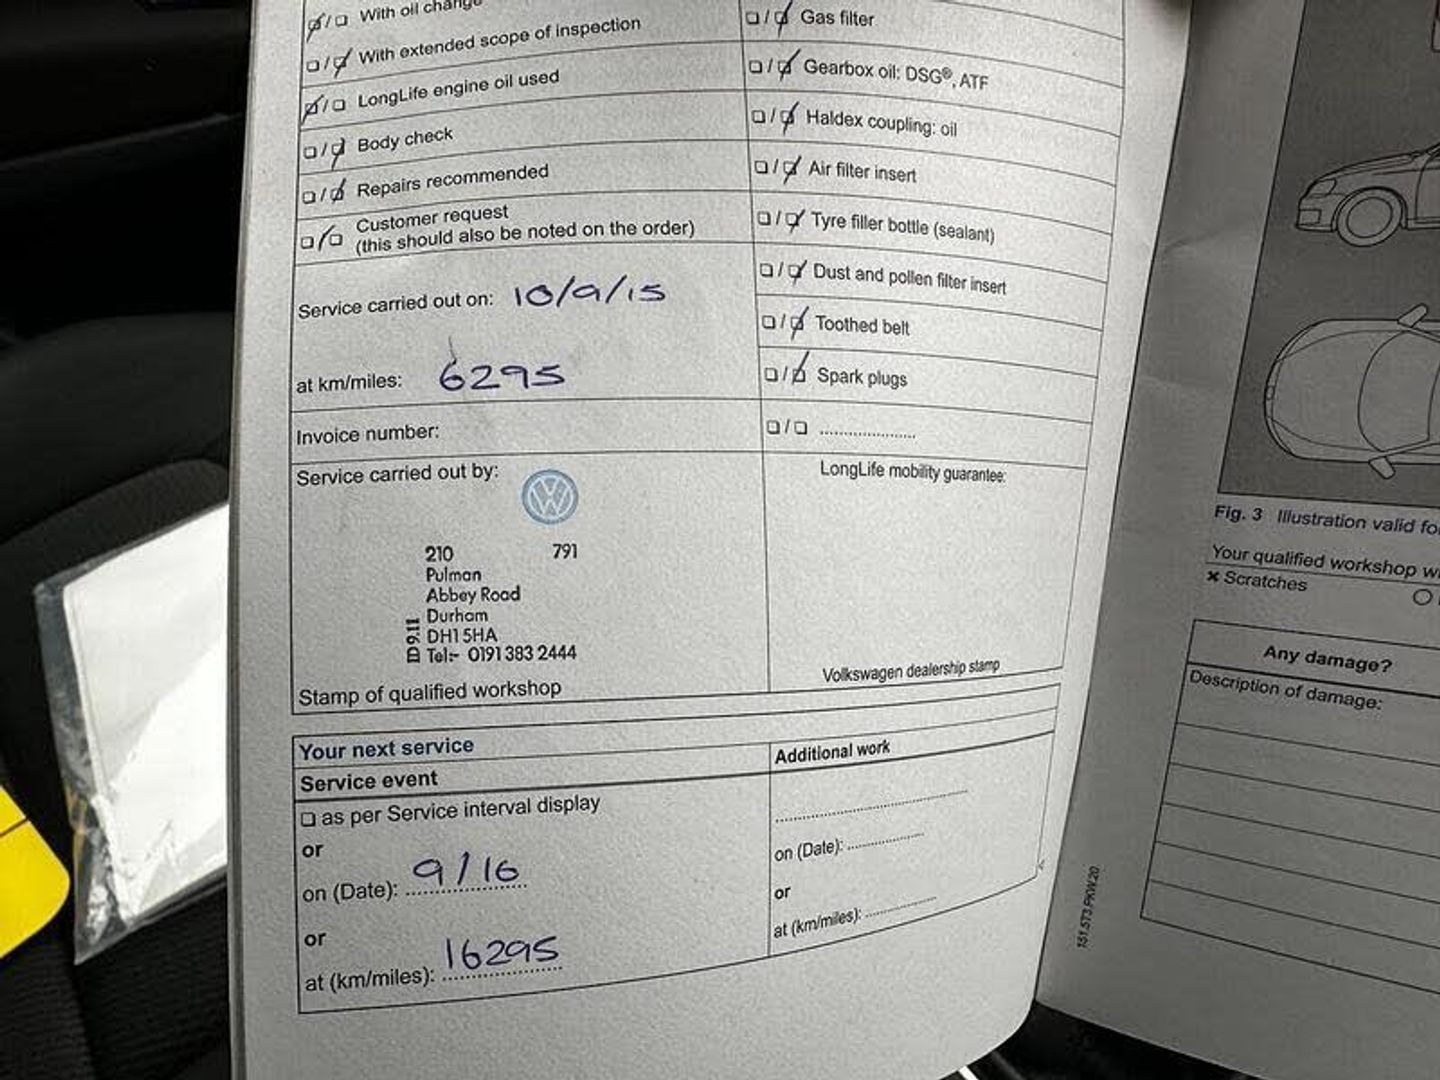 With oil change
With extended scope of inspection
LongLife engine oil used
Body check
Repairs recommended
Customer request
(this should also be noted on the order)
Service carried out on: 10/9/15
at km/miles: 6295
Invoice number:
Service carried out by:
210 791
Pulman
Abbey Road
Durham
DH1 5HA
Tel:- 0191 383 2444
ID 9.11
Stamp of qualified workshop
Gas filter
Gearbox oil: DSG®, ATF
Haldex coupling: oil
Air filter insert
Tyre filler bottle (sealant)
Dust and pollen filter insert
Toothed belt
Spark plugs
....................
LongLife mobility guarantee:
Volkswagen dealership stamp
Your next service
Service event
as per Service interval display
or
on (Date): 9/16
or
at (km/miles): 16295
Additional work
on (Date): ................
or
at (km/miles): ...............
151.5T3.PKW.20
Fig. 3 Illustration valid fo
Your qualified workshop w
× Scratches
Any damage?
Description of damage: